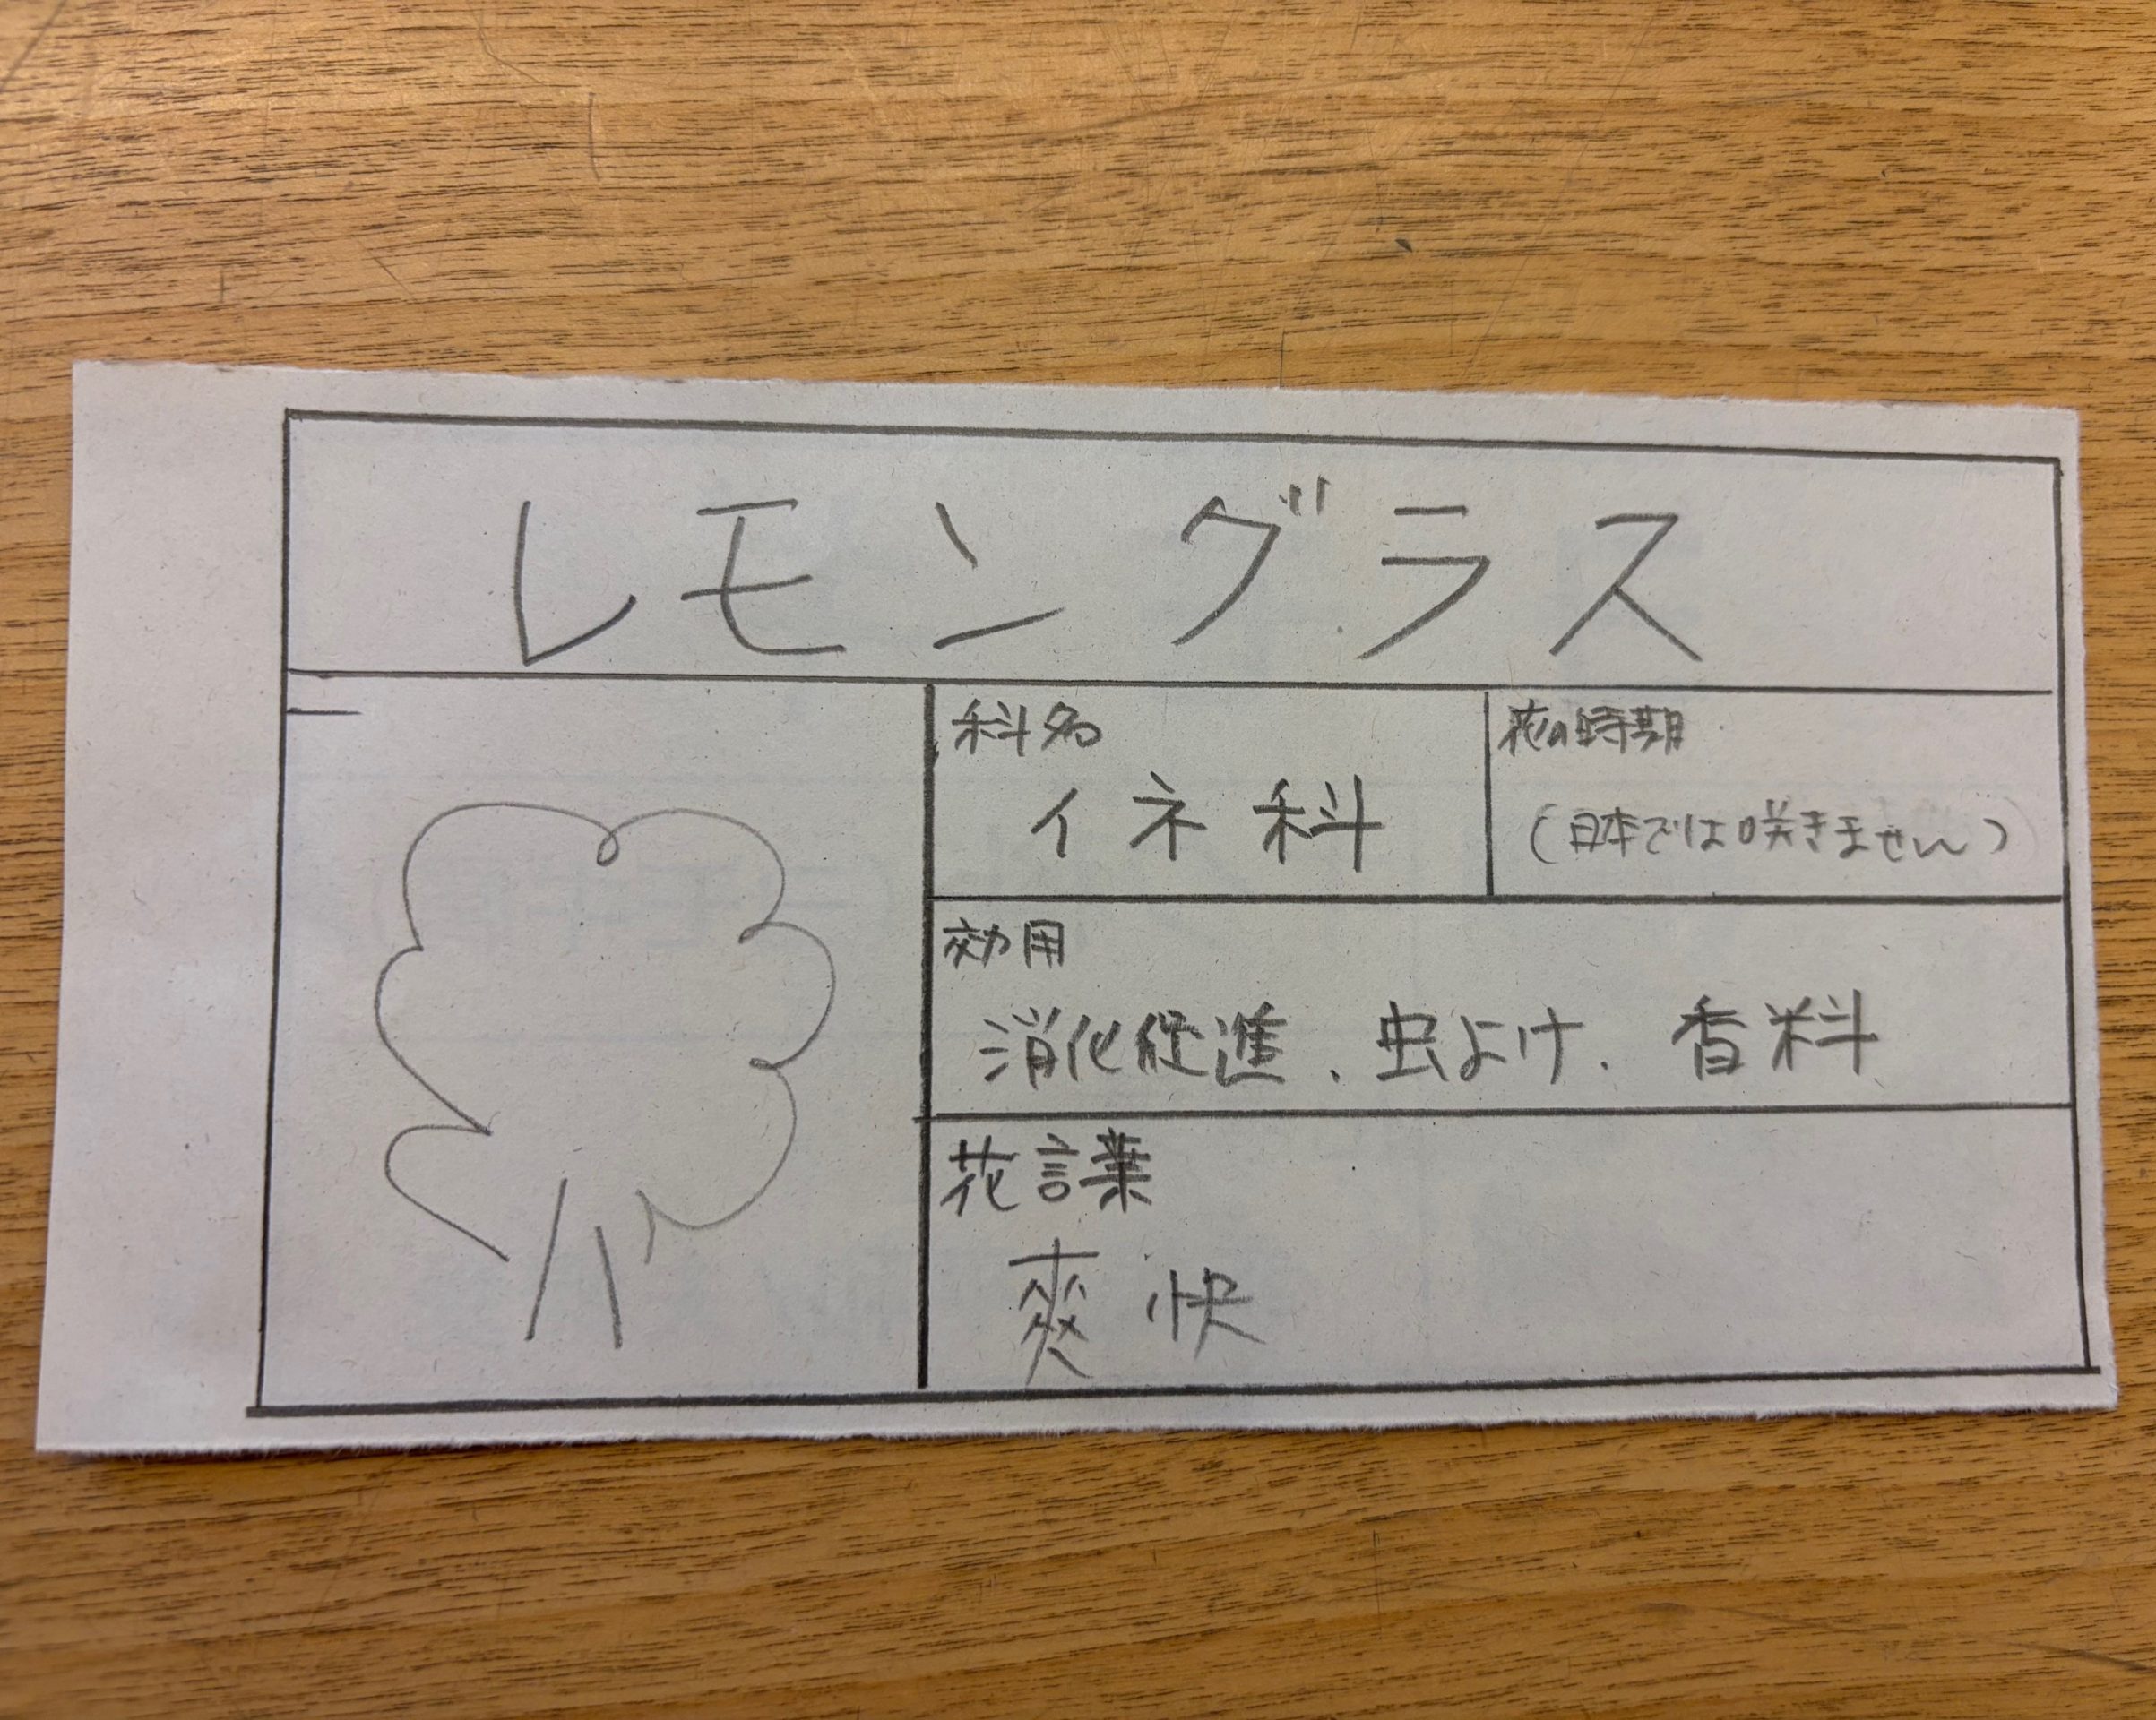 レモングラス
科名
イネ科
花の時期
(日本では咲きません)
効用
消化促進、虫よけ、香料
花言葉
爽快